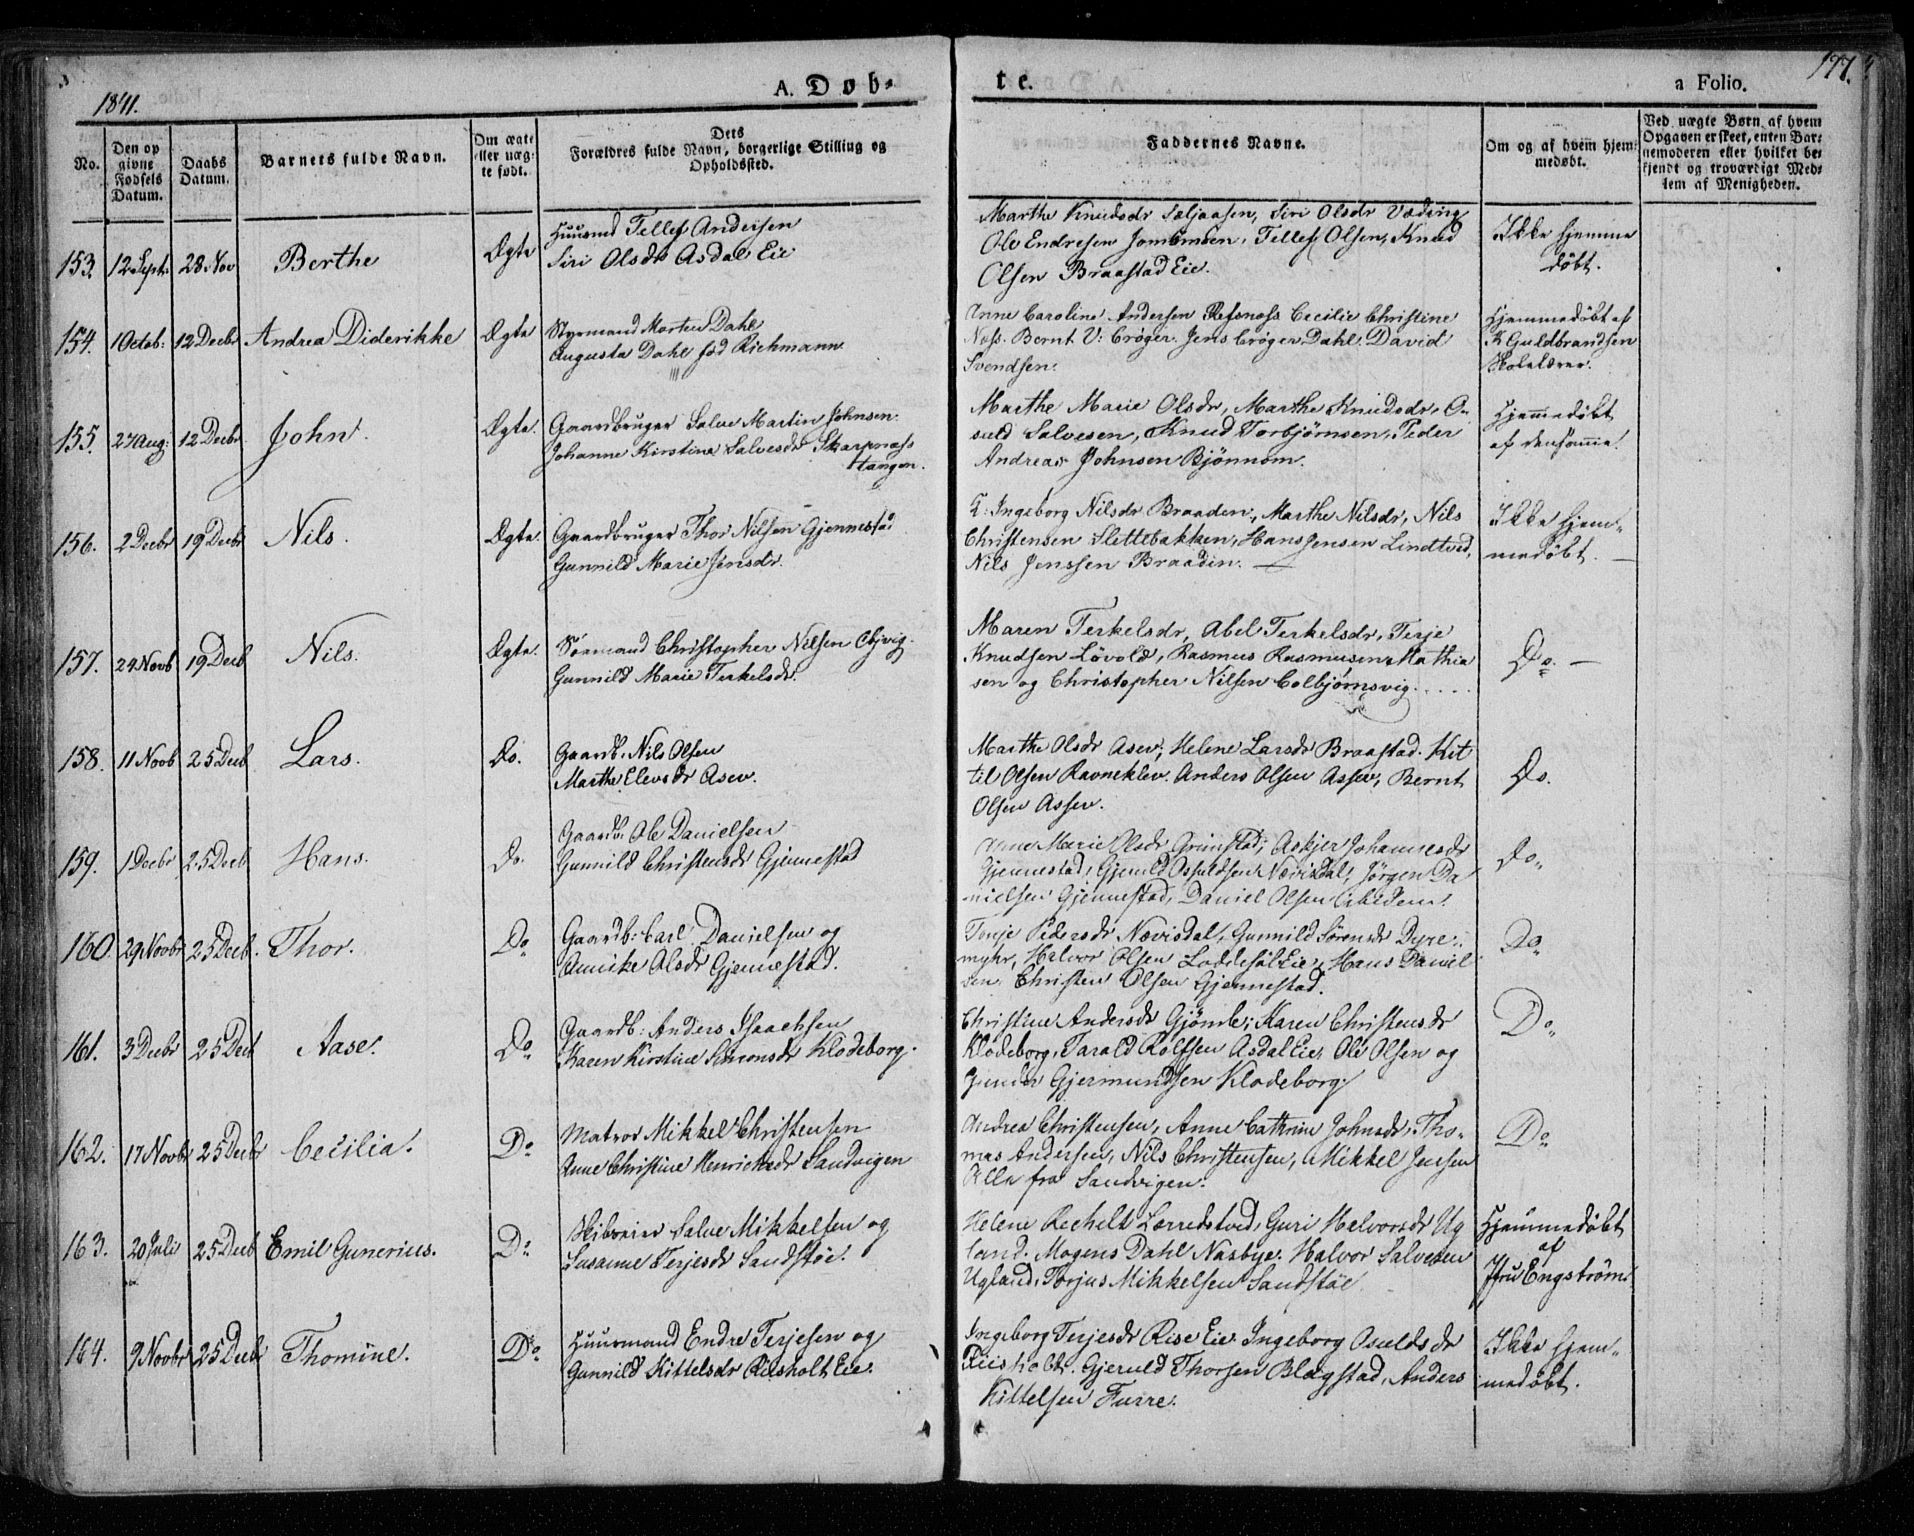 1841.
A. Döb-
te.
a Folio.
177.
No.
Den op
givne
Fødsels
Datum.
Daabs
Datum.
Barnets fulde Navn.
Om ægte
eller uæg-
te født.
Dets
Forældres fulde Navn, borgerlige Stilling og
Opholdssted.
Faddernes Navne.
Om og af hvem hjem-
medøbt.
Ved uægte Børn af hvem
Opgaven er skeet, enten Bar-
nemoderen eller hvilket be-
kjendt og troværdigt Med-
lem af Menigheden.
153. 12 Sept: 28 Nov Berthe Ægte
Huusmd Tellef Andersen
Siri Olsdr Asdal Eie
Marthe Knudsdr Saljaasen, Siri Olsdr Væding
Ole Endresen Jomåmsen, Tellef Olsen, Knud
Olsen Braastad Eie.
Ikke hjemme
døbt.
154. 1 Octob: 12 Decbr Andrea Diderikke Ægte
Styrmand Morten Dahl
Augusta Dahl fød Richmann
Anne Caroline Andersen Refsnæss Cecilie Christine
Næss. Bernt V: Crøger. Jens Crøger Dahl. David
Svendsen.
Hjemmedøbt af
K Guldbrandsen
Skolelærer.
155. 27 Aug: 12 Decbr John. Ægte.
Gaardbruger Salve Martin Johnsen.
Johanne Kirstine Salvesdr Skarpnæss
tangen.
Marthe Marie Olsdr, Marthe Knudsdr, O-
suld Salvesen, Knud Torbjørnsen, Peder
Andreas Johnsen Bjönnom.
Hjemmedøbt
af densamme.
156. 2 Decbr 19 Decbr Nils. Ægte.
Gaardbruger Thor Nilsen Gjennestad
Gunnild Marie Jensdr.
K: Ingeborg Nilsdr Braaden, Marthe Nilsdr, Nils
Christensen Slettebakken, Hans Jensen Lindtved,
Nils Jenssen Braadin.
Ikke hjem-
medøbt.
157. 24 Novb 19 Decb Nils. Ægte.
Sømand Christopher Nilsen Cbjvig.
Gunnild Marie Terkelsdr.
Maren Terkelsdr, Abel Terkelsdr, Terje
Knudsen Løvold, Rasmus Rasmusen Mathia
sen og Christopher Nilsen Colbjørnsvig.
Do.
158. 11 Novb 25 Decb Lars. Do.
Gaardb. Nils Olsen
Marthe Elevsdr Asev.
Marthe Olsdr Asev, Helene Larsdr Braastad. Kit
til Olsen Ravneklev. Anders Olsen Assev, Bernt
Olsen Assev.
Do.
159. 1 Decbr 25 Decb Hans. Do.
Gaardb. Ole Danielsen
Gunnild Christensdr Gjennestad
Anne Marie Olsdr Grimstad, Askjer Johannesdr
Gjennestad, Gjeruld Ossuldsen Nævisdal, Jörgen Da
nielsen Gjennestad, Daniel Olsen
Do
160. 29 Novbr 25 Decb. Thor. Do
Gaardb: Carl Danielsen og
Annike Olsdr Gjennestad.
Tonje Pedersdr Nævisdal, Gunnild Sörensdr Dyre-
myhr, Halvor Olsen Loddesöl Eie, Hans Daniel
sen, Christen Olsen Gjennestad.
Do
161. 3 Decbr 25 Decb Aase. Do
Gaardb: Anders Isaachsen
Karen Kirstine Simonsdr Klodeborg.
Christine Andersdr Gjömle, Karen Christensdr
Klodeborg, Tarald Rolfsen Asdal Eie, Ole Olsen og
Gunder Gjermundsen Klodeborg.
Do
162. 17 Novbr 25 Decbr Cecilia. Do
Matros Mikkel Christensen
Anne Christine Henrichsdr Sandvigen
Andrea Christensen, Anne Cathrine Johnsdr, Tho-
mas Andersen, Nils Christensen, Mikkel Jensen
Alle fra Sandvigen.
Do
163. 20 Juli 25 Decb Emil Gunerius. Do
Skibseier Salve Mikkelsen og
Susanne Terjesdr Sandstöe.
Helene Rechelt Lærredstved, Guri Halvorsdr Ug
land. Mogens Dahl Næsbye. Halvor Salvesen
Ugland, Torjus Mikkelsen Sandstöe
Hjemmedøbt
af
Fru Engström.
164. 9 Novbr 25 Decbr Thomine. Do
Huusmand Endre Terjesen og
Gunnild Kittelsdr Riisholt Eie.
Ingeborg Terjesdr Rise Eie. Ingeborg Osuldsdr
Riisholdt. Gjeruld Thorsen Blægstad, Anders
Kittelsen Furre.
Ikke hjem-
medøbt.